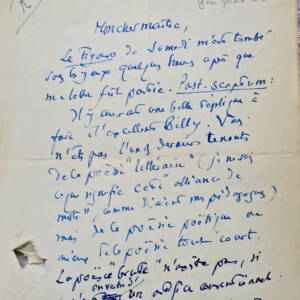 Mon cher maître,
Le Figaro de Samedi m'est tombé
sous les yeux quelques heures après que
ma lettre fût partie. Post-scriptum:
Il y aurait une belle réplique à
faire à l'excellent Billy. Vous
n'êtes pas l'un des derniers tenants
de la poésie "littéraire" (je ne sais
ce que signifie cette "alliance de
mots", comme disaient mes pédagogues)
mais de la poésie poétique ou
même de la poésie tout court.
La poésie "brute" n'existe pas, si
un édifice conventionnel